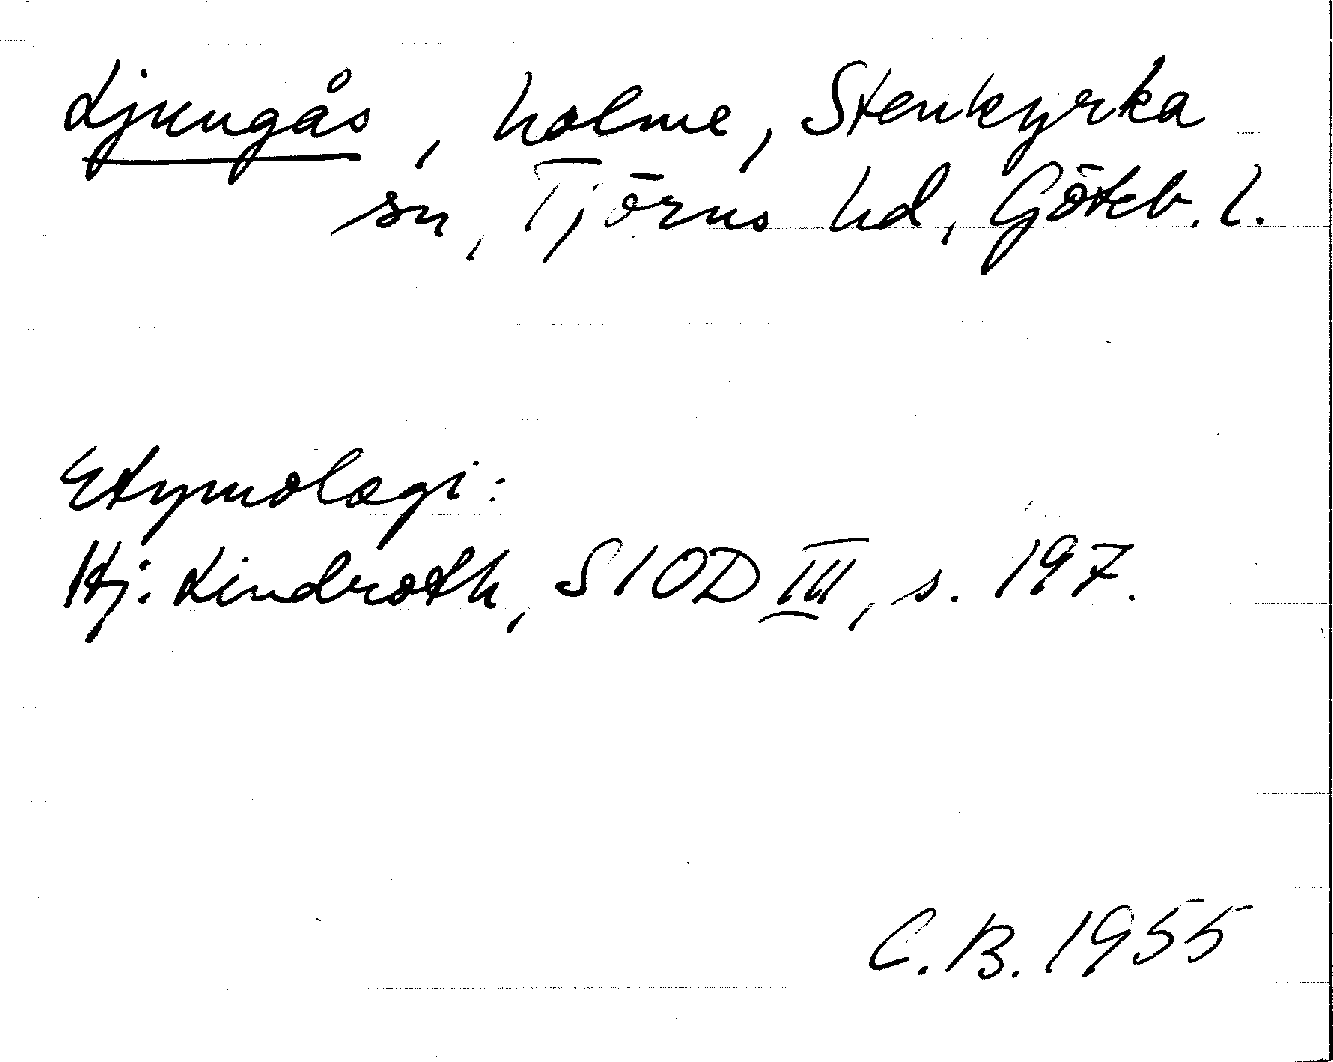 Ljungås, holme, Stenkyrka
sn, Tjörns hd, Göteb. l.
Etymologi:
Hj. Lindroth, SIOD III, s. 197.
C.B. 1955